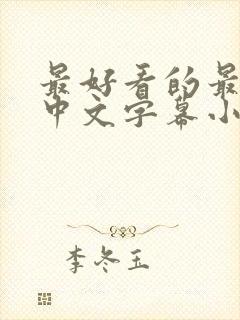 最好看的最
中文字幕小
李冬玉